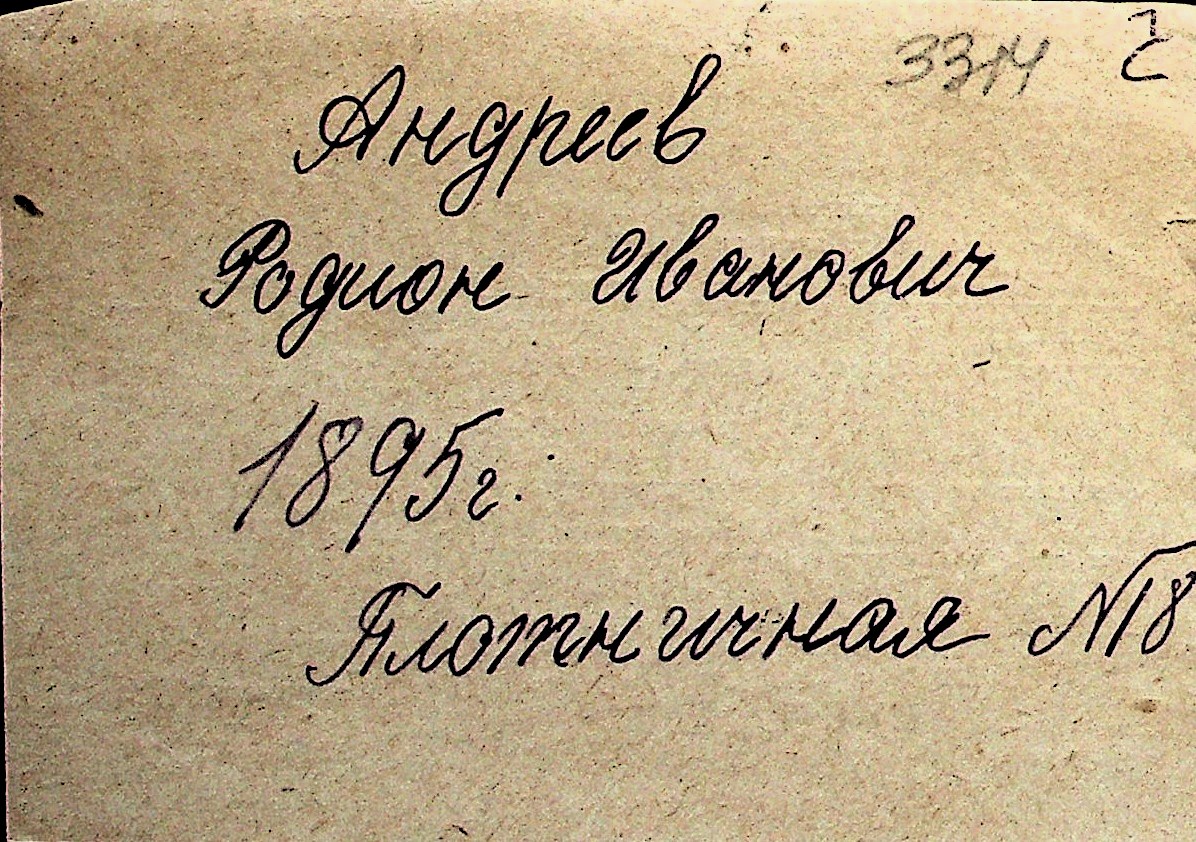 3314
Андреев
Родион Иванович
1895г.
Плотничная №18